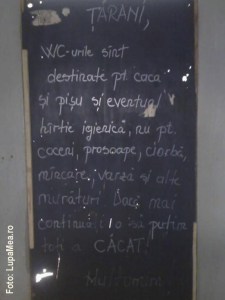 ȚĂRANI,
WC-urile sînt
destinate pt. caca
și pișu și eventual
hîrtie igienică, nu pt.
coceni, prosoape, ciorbă,
mîncare, varză și alte
murături. Dacă mai
continuați o să puțim
toți a CĂCAT!
Mulțumim
Foto: LupaMea.ro